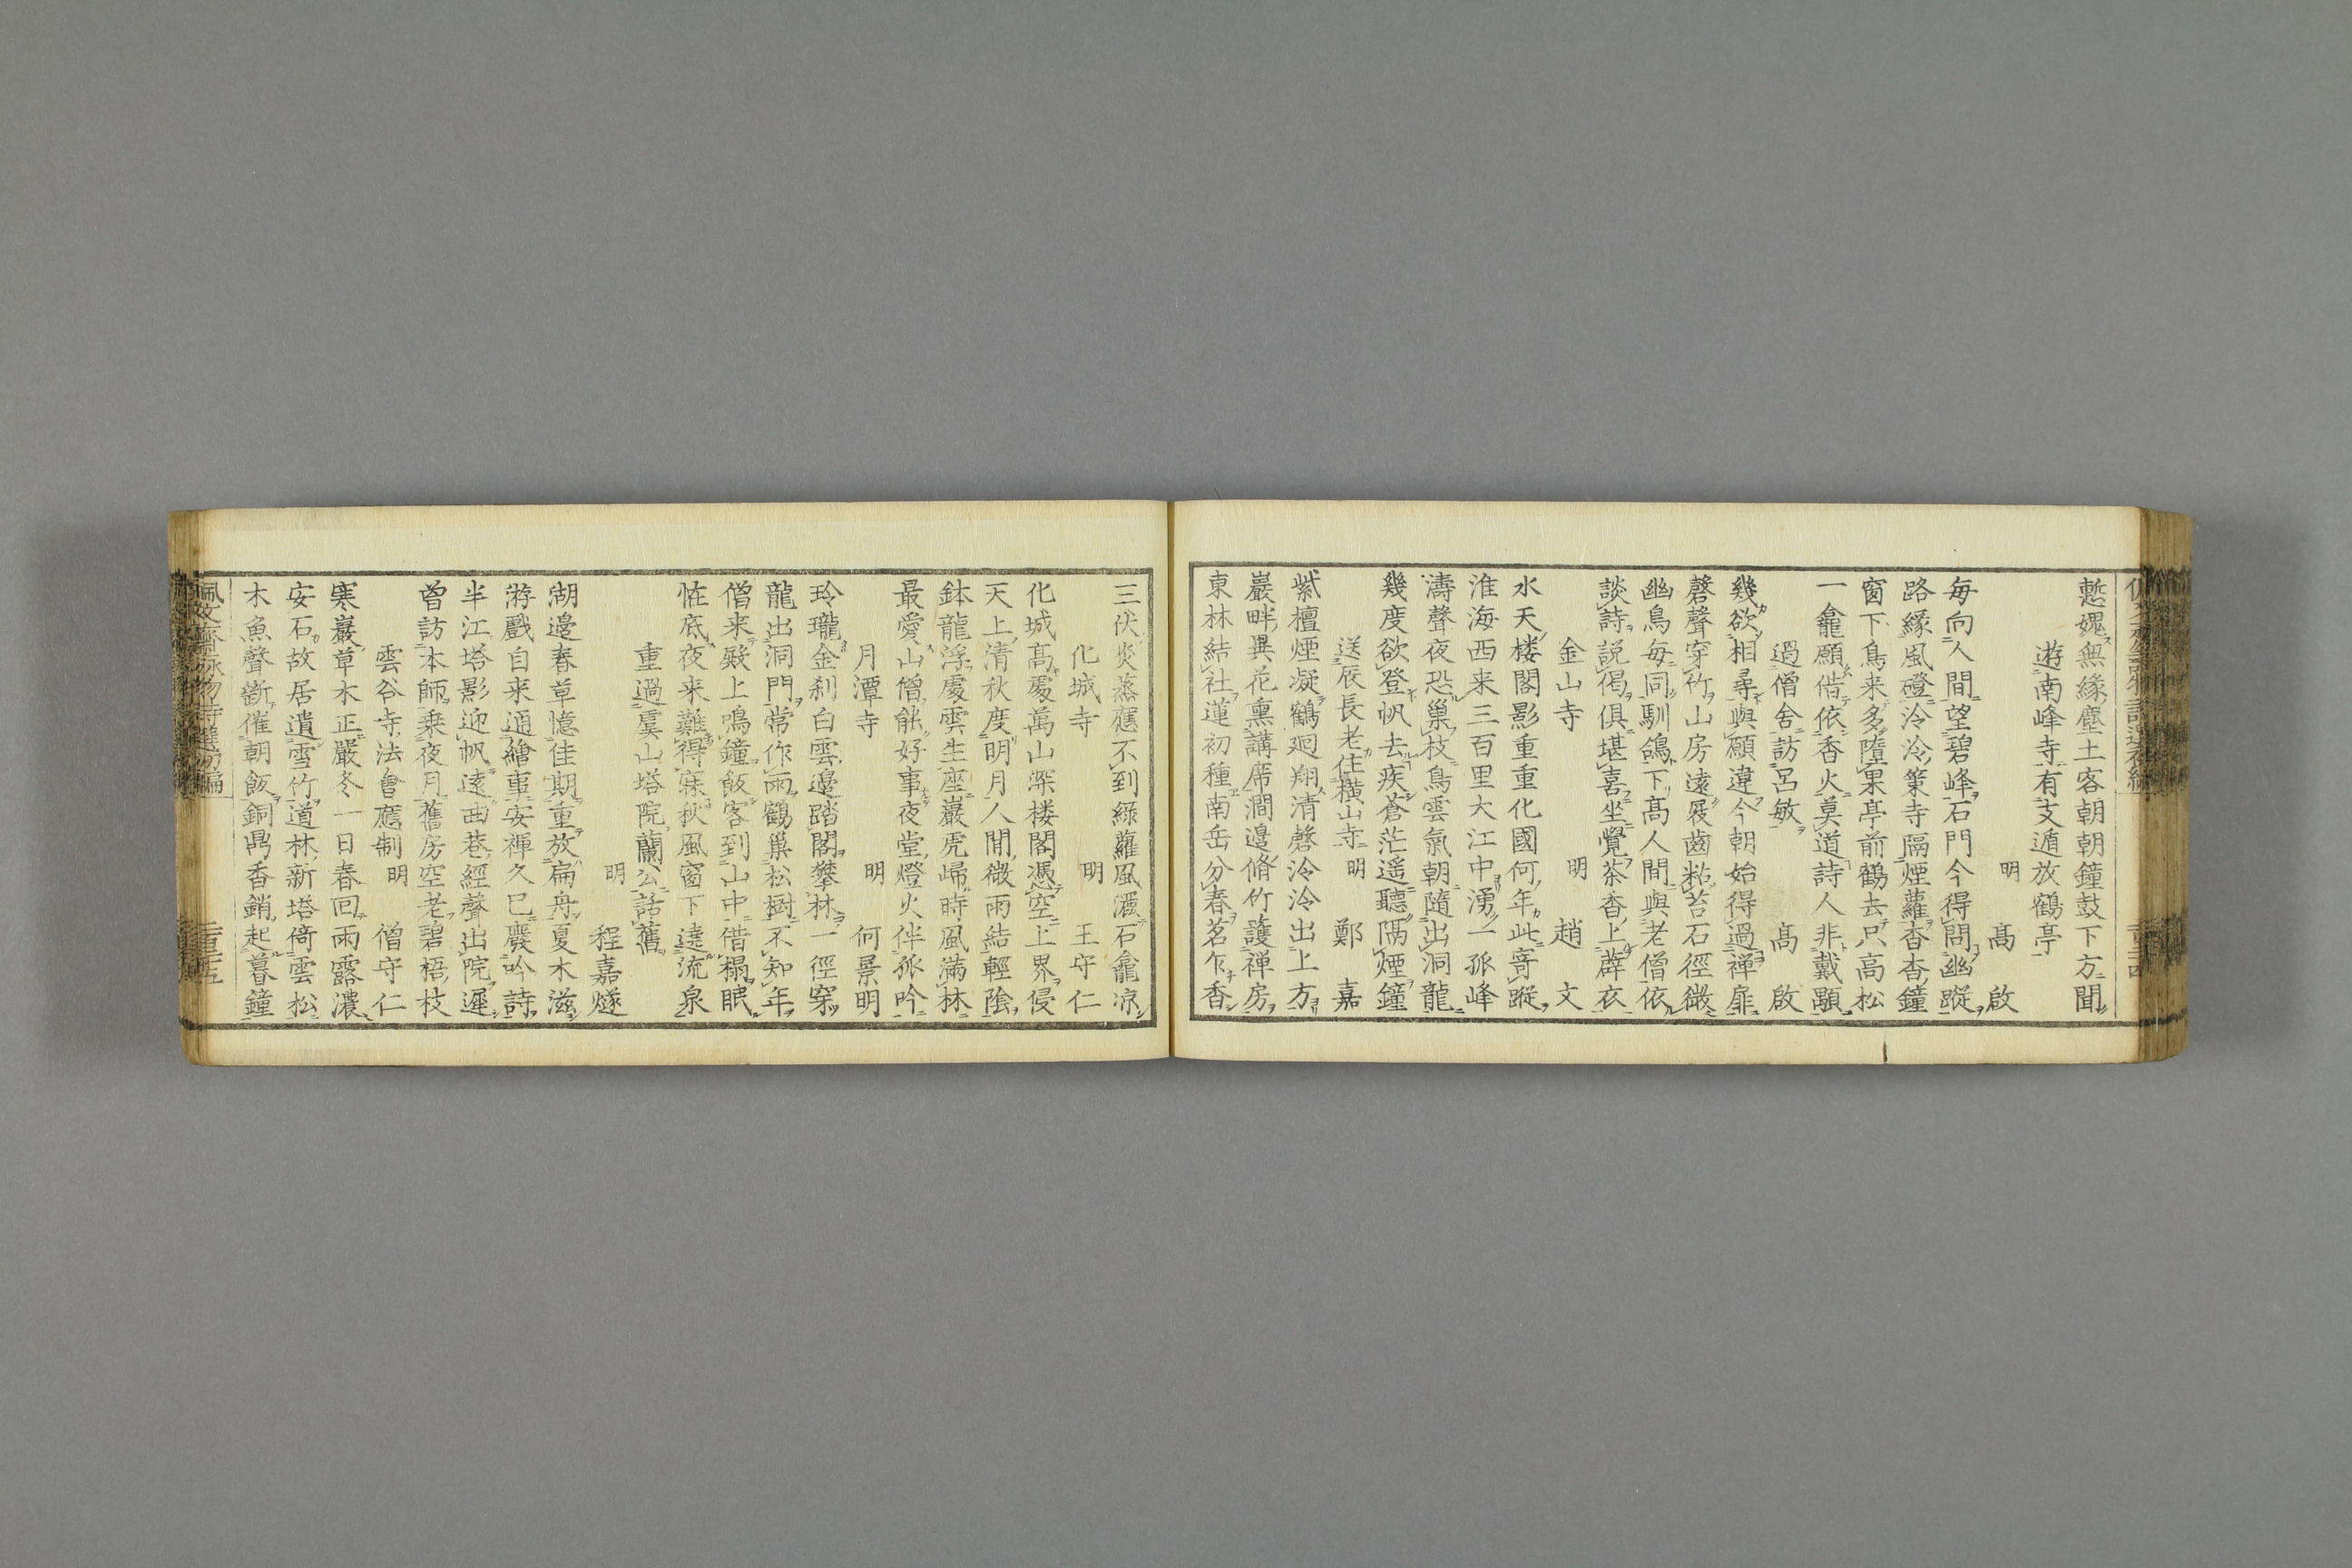 慙媿無緣塵土客朝朝鐘鼓下方聞
遊南峰寺有支遁放鶴亭
明　髙　啟
每向人間望碧峰石門今得問幽蹤
路緣風磴泠泠策寺隔煙蘿杳杳鐘
窗下鳥来多墮果亭前鶴去只高松
一龕願借依香火莫道詩人非戴顒
過僧舍訪呂敏　髙　啟
幾欲相尋與願違今朝始得過禅扉
磬聲穿竹山房遠屐齒粘苔石徑微
幽鳥每同馴鴿下髙人間與老僧依
談詩説偈俱堪喜坐覺茶香上薜衣
金山寺　明　趙　文
水天楼閣影重重化國何年此寄蹤
淮海西来三百里大江中湧一孤峰
濤聲夜恐巢枝鳥雲氣朝隨出洞龍
幾度欲登帆去疾蒼茫遥聽隔煙鐘
送辰長老住橫山寺　明　鄭　嘉
紫檀煙凝鶴廻翔清磬泠泠出上方
巖畔異花熏講席澗邉脩竹護禅房
東林結社蓮初種南岳分春茗乍香
三伏炎蒸應不到綠蘿風濕石龕凉
化城寺　明　王守仁
化城髙處萬山深楼閣憑空上界侵
天上清秋度明月人間微雨結輕陰
鉢龍浮處雲生座巖虎歸時風滿林
最愛山僧能好事夜堂燈火伴孤吟
月潭寺　明　何景明
玲瓏金刹白雲邉踏閣攀林一徑穿
龍出洞門常作雨鶴巢松樹不知年
僧来殿上鳴鐘飯客到山中借榻眠
恠底夜来難得寐秋風窗下遶流泉
重過虞山塔院蘭公話舊
明　程嘉燧
湖邉春草憶佳期重放扁舟夏木滋
游戲自来通繪事安禪久已廢吟詩
半江塔影迎帆遠西巷經聲出院遲
曾訪本師乗夜月舊房空老碧梧枝
雲谷寺法會應制　明　僧守仁
寒巖草木正嚴冬一日春回雨露濃
安石故居遺雪竹道林新塔倚雲松
木魚聲斷催朝飯銅鼎香銷起暮鐘
佩文齋詠物詩選初編